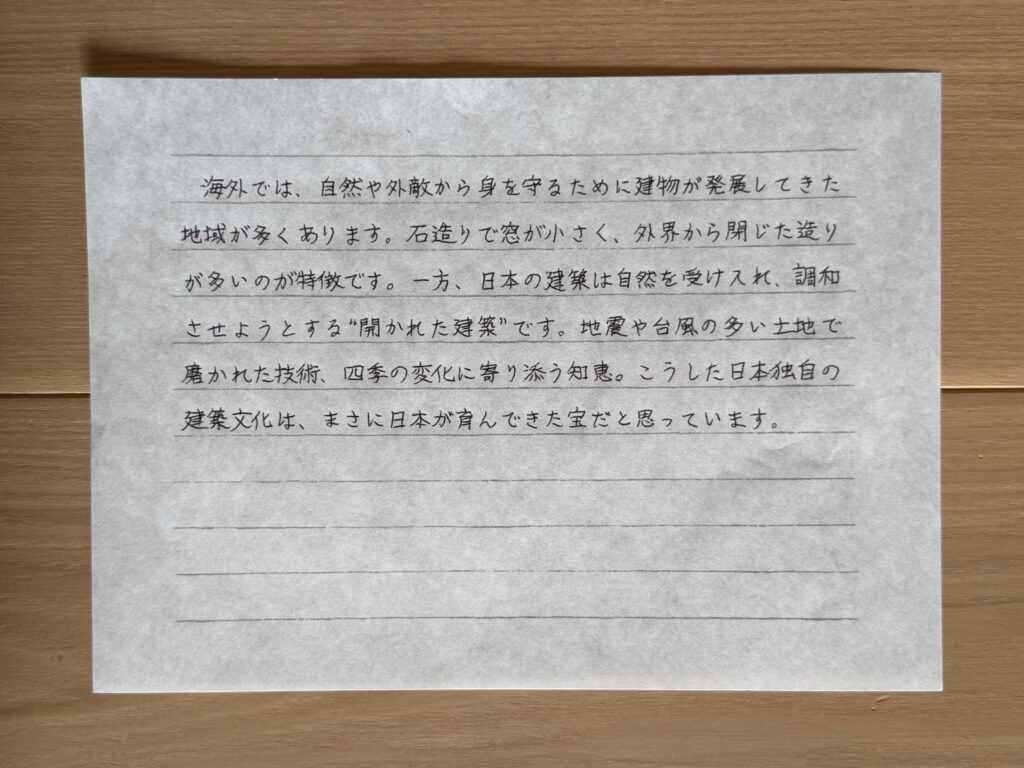 海外では、自然や外敵から身を守るために建物が発展してきた
地域が多くあります。石造りで窓が小さく、外界から閉じた造り
が多いのが特徴です。一方、日本の建築は自然を受け入れ、調和
させようとする“開かれた建築”です。地震や台風の多い土地で
磨かれた技術、四季の変化に寄り添う知恵。こうした日本独自の
建築文化は、まさに日本が育んできた宝だと思っています。